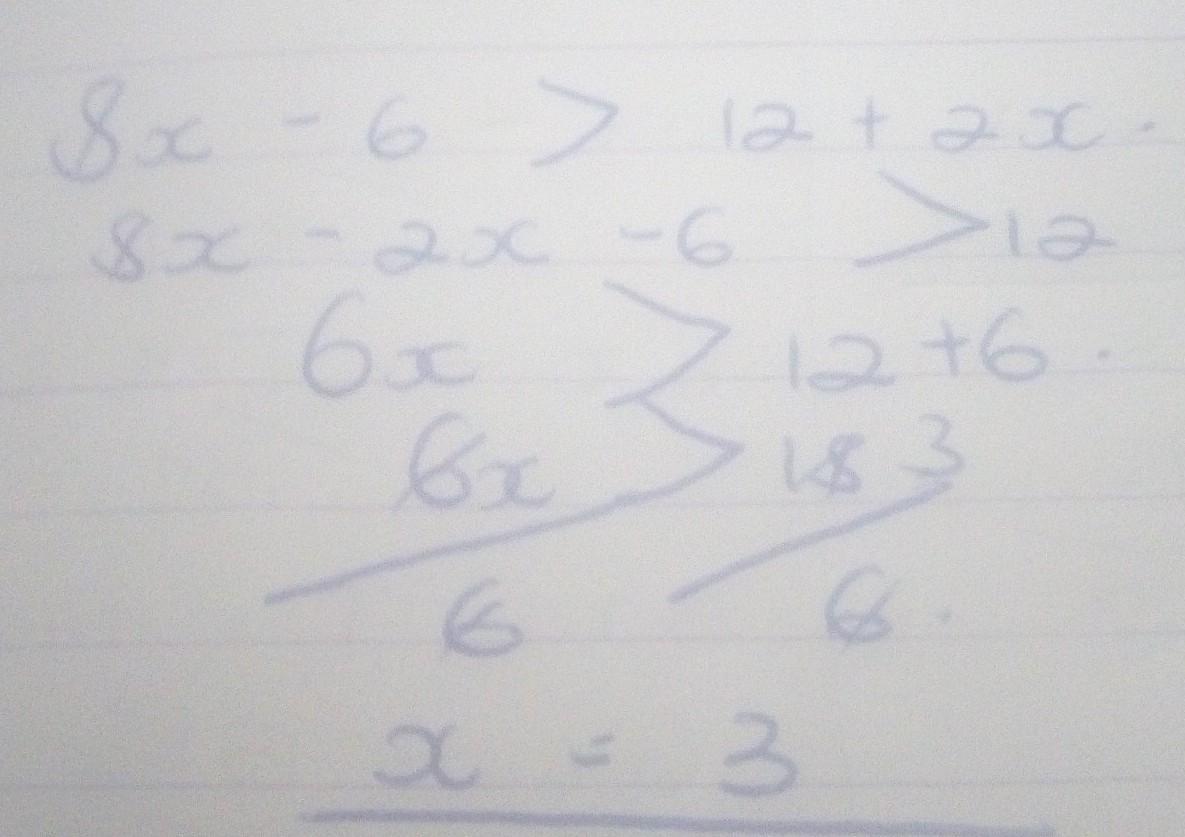 8x - 6 > 12 + 2x.
8x - 2x - 6 > 12
6x > 12 + 6.
6x > 18 3
6 6.
x = 3